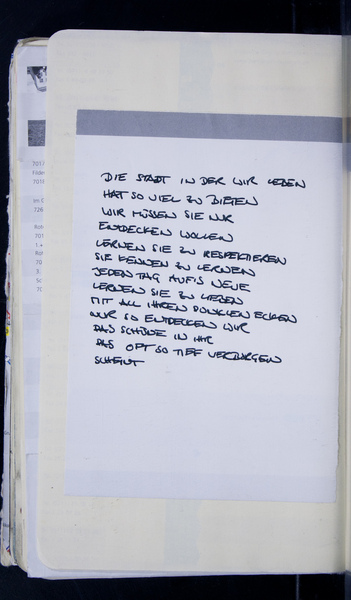 7017
Filder
7019
Im G
726
Rot
701
I. +
Rot
70
3.
Sc
70
DIE STADT IN DER WIR LEBEN
HAT SO VIEL ZU BIETEN
WIR MÜSSEN SIE NUR
ENTDECKEN WOLLEN
LERNEN SIE ZU RESPEKTIEREN
SIE KENNEN ZU LERNEN
JEDEN TAG AUF'S NEUE
LERNEN SIE ZU LIEBEN
MIT ALL IHREN DUNKLEN ECKEN
NUR SO ENTDECKEN WIR
DAS SCHÖNE IN IHR
DAS OFT SO TIEF VERBORGEN
SCHEINT